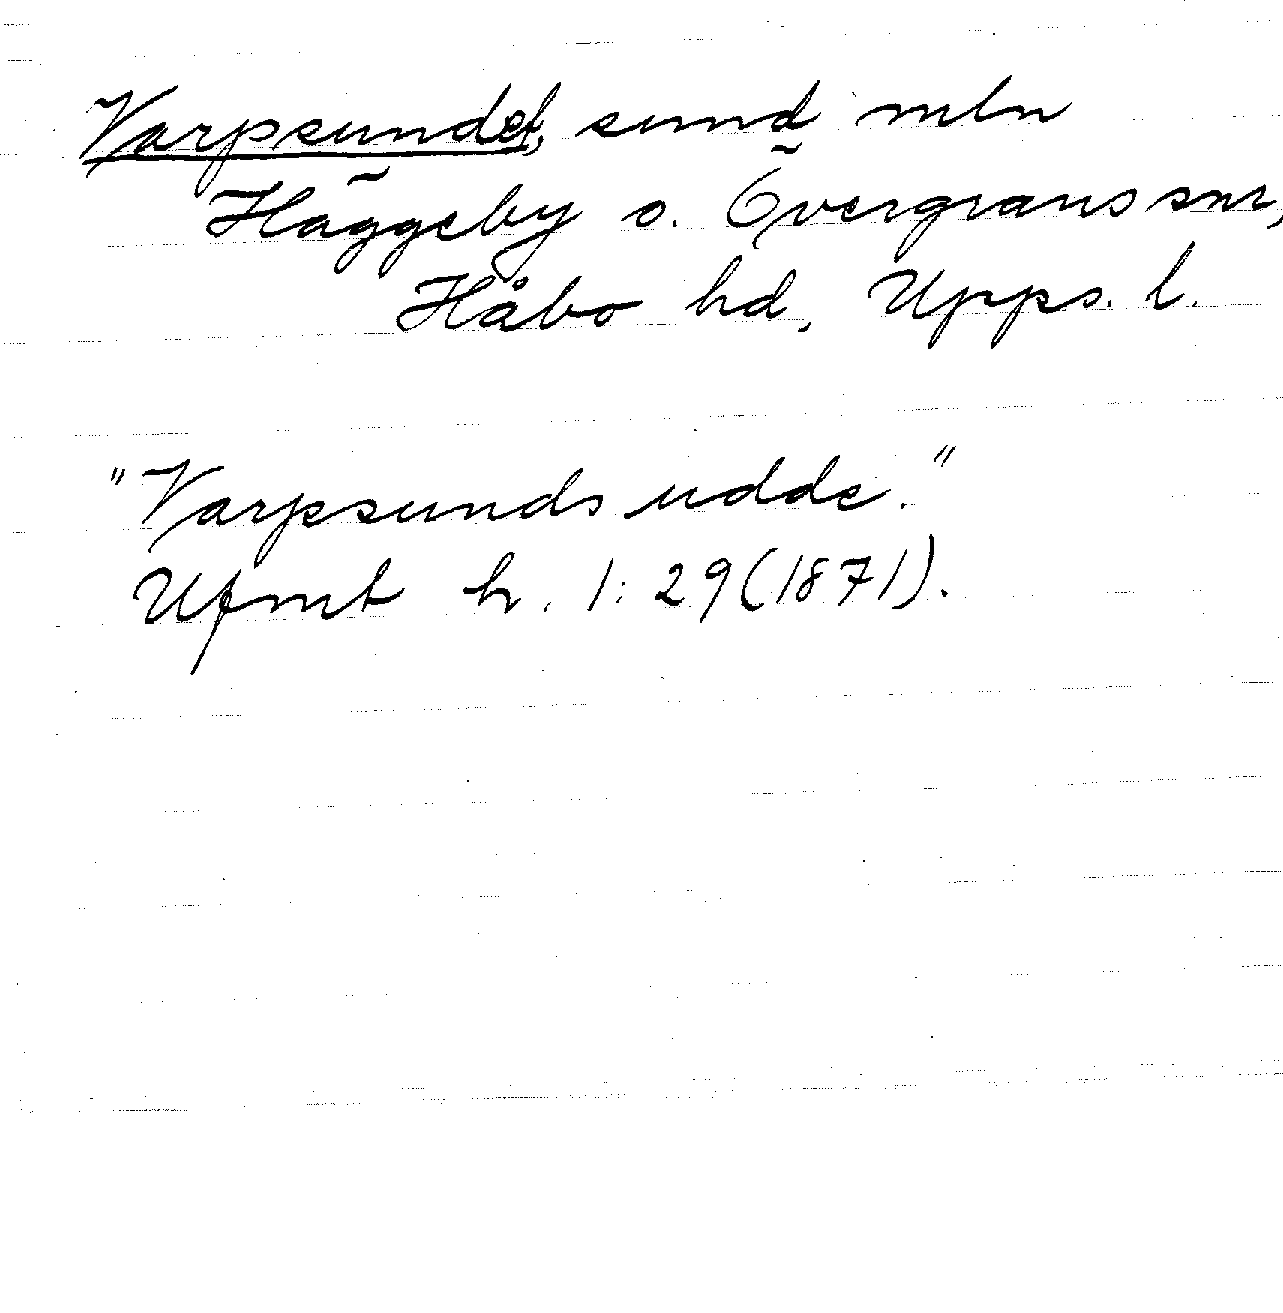 Varpsundet, sund mln
Häggeby o. Övergrans snr,
Håbo hd, Upps. l.
"Varpsunds udde."
Ufmt h. 1:29(1871).